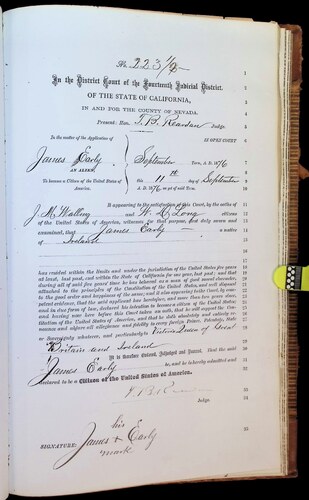 No. 223 1/2
In the District Court of the Fourteenth Judicial District
OF THE STATE OF CALIFORNIA,
IN AND FOR THE COUNTY OF NEVADA.
Present: Hon. T. B. Reardan Judge.
In the matter of the Application of
IN OPEN COURT
James Early
AN ALIEN,
To become a Citizen of the United States of America.
September Term, A. D. 1876
this 11th day of September
A. D. 1876 as yet of said Term.
It appearing to the satisfaction of this Court, by the oaths of
J. M. Walling and W. D. Long citizens
of the United States of America, witnesses for that purpose, first duly sworn and
examined, that James Early a native
of Ireland
has resided within the limits and under the jurisdiction of the United States five years
at least, last past, and within the State of California for one year, last past; and that
during all of said five years' time he has behaved as a man of good moral character,
attached to the principles of the Constitution of the United States, and well disposed
to the good order and happiness of the same; and it also appearing to the Court, by com-
petent evidence, that the said applicant has heretofore, and more than two years since,
and in due form of law, declared his intention to become a citizen of the United States;
and having now here before this Court taken an oath, that he will support the Con-
stitution of the United States of America, and that he doth absolutely and entirely re-
nounce and abjure all allegiance and fidelity to every foreign Prince, Potentate, State
or Sovereignty whatever, and particularly to Victoria Queen of Great
Britain and Ireland
It is therefore Ordered, Adjudged and Decreed, that the said
James Early be, and he is hereby admitted and
declared to be a Citizen of the United States of America.
T B Reardan
Judge.
his
SIGNATURE: James + Early
mark